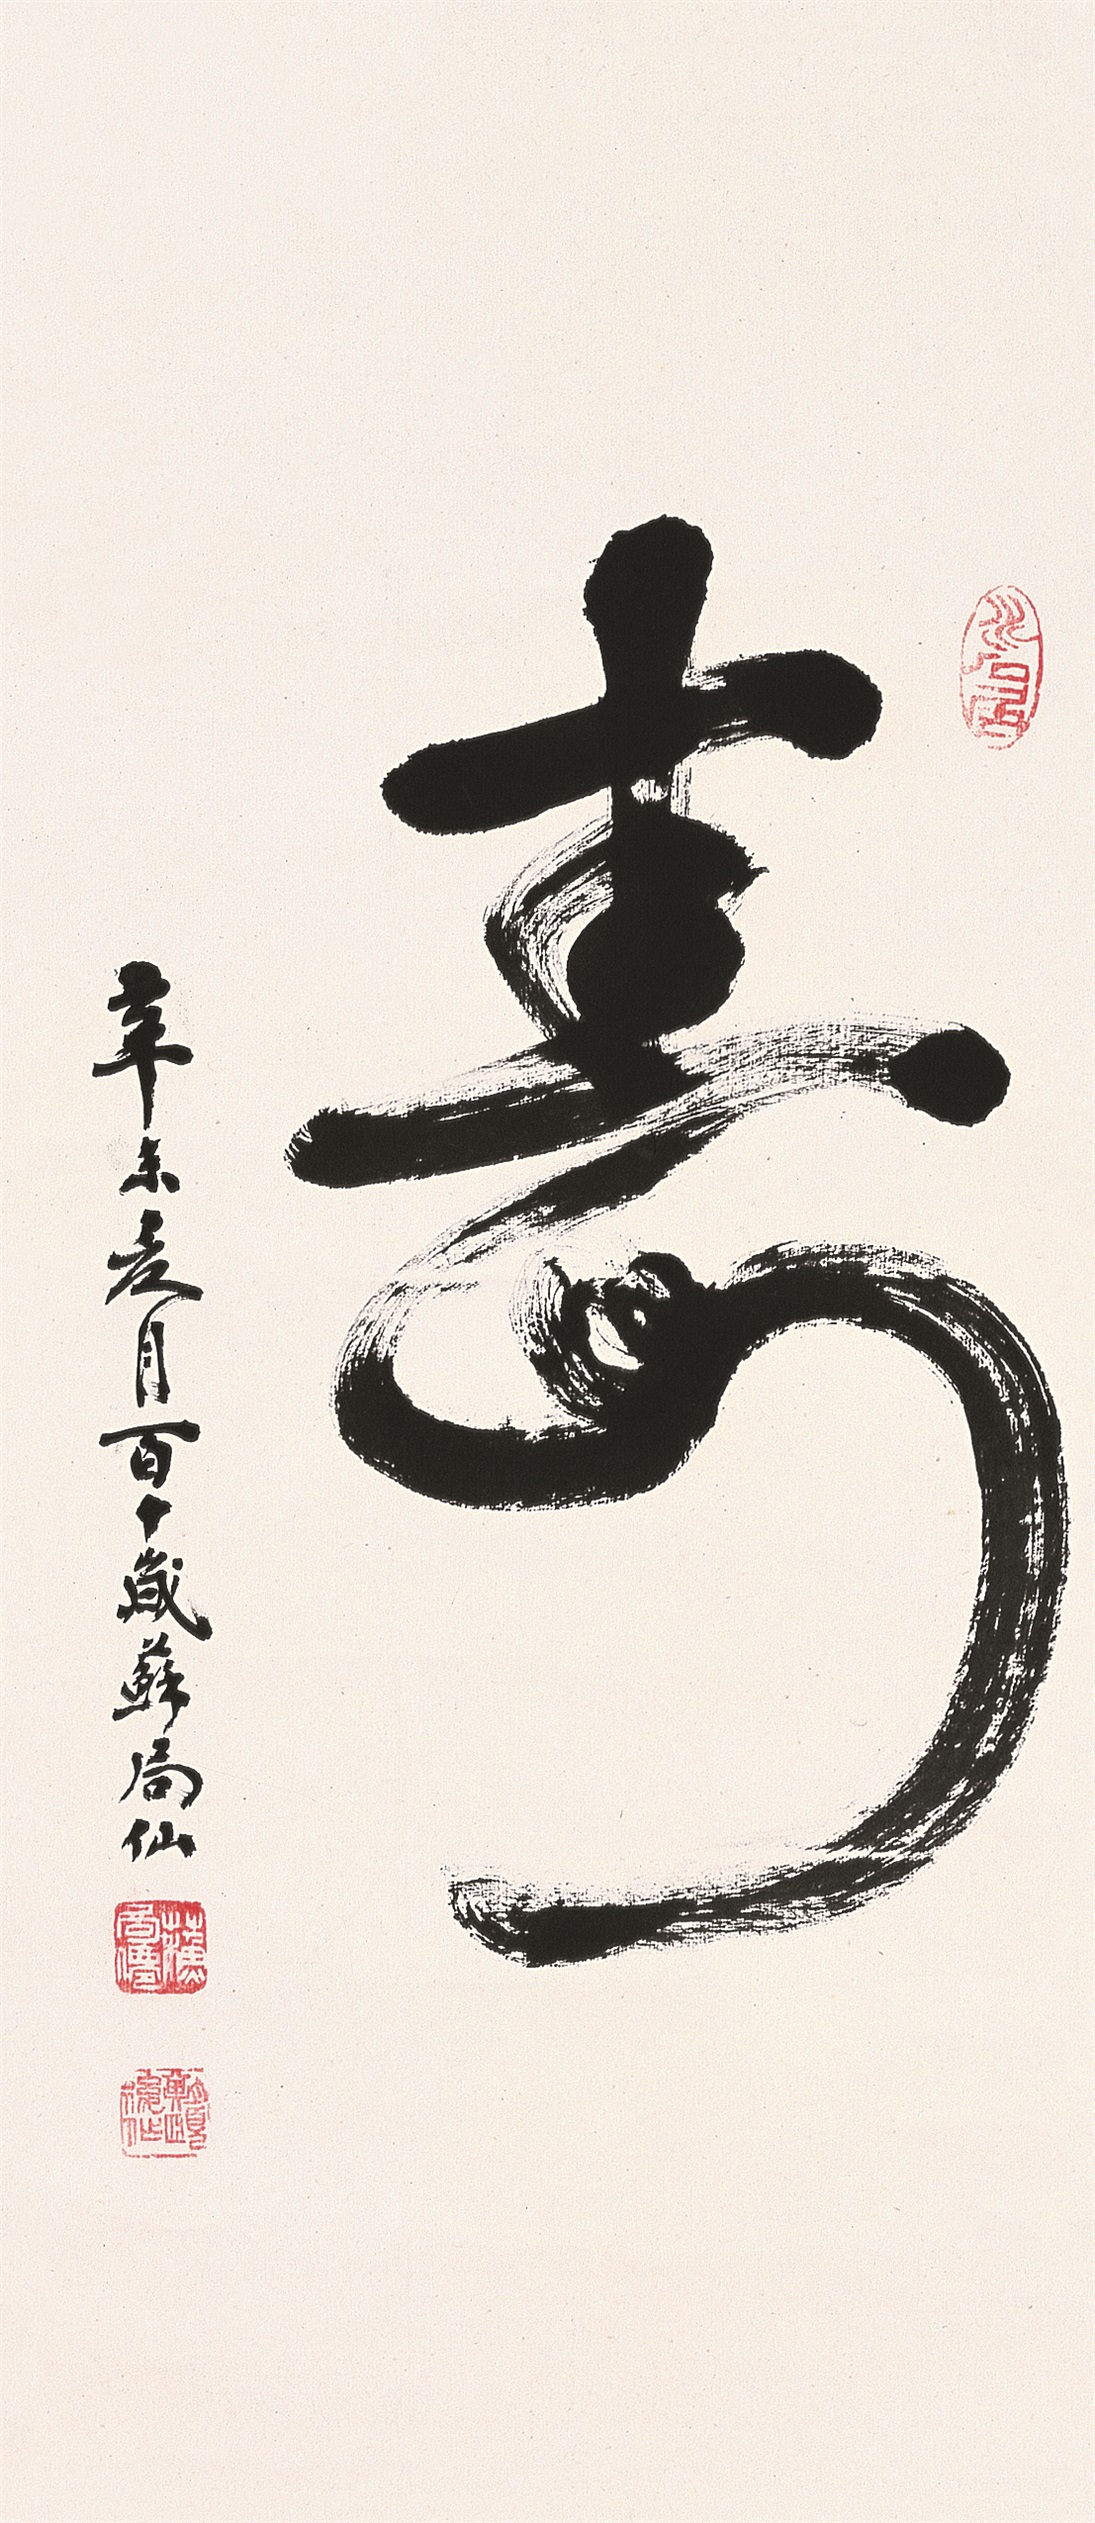 壽
辛未夏月百十歲蘇局仙
蘇局僊